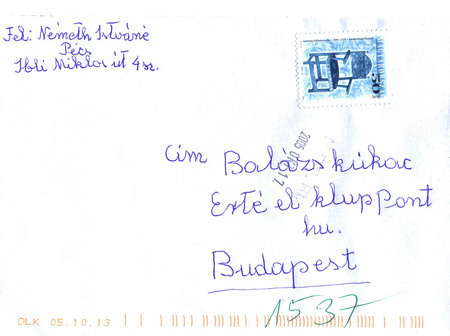 Fel: Németh Istváné
Pécs
Ibli Miklos út 4 sz.
Cím Balázs kukac
Exté el kluppont
hu.
Budapest
1537
OLK 05.10.13